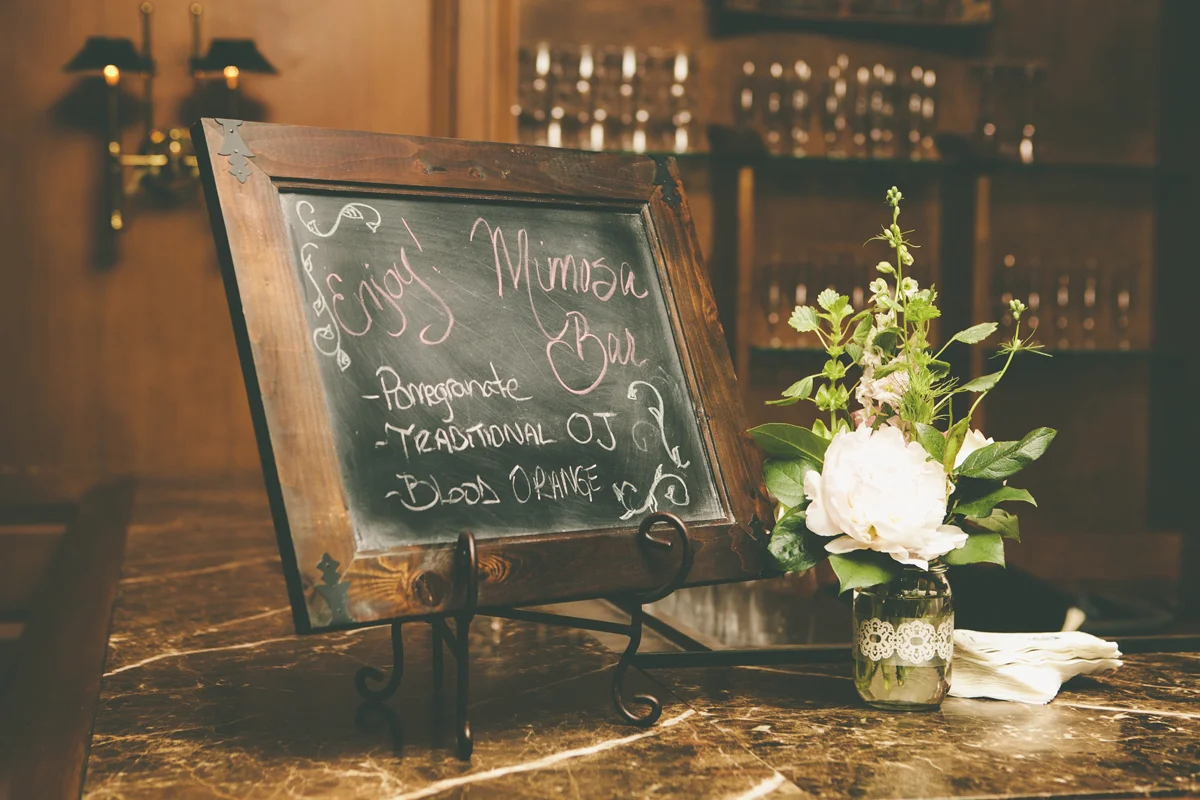 Enjoy Mimosa
Bar
-Pomegranate
-TRADITIONAL OJ
-BLOOD ORANGE